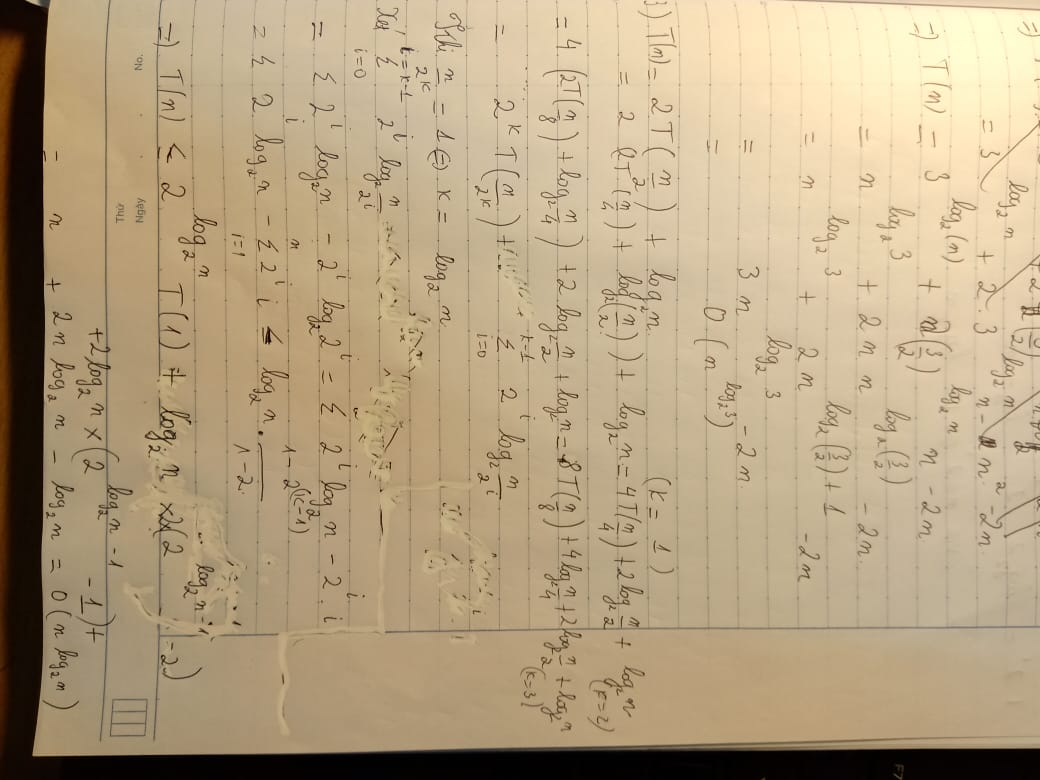 = 3^{log_2 n} + 2 . 3^{log_2 n} n - n^2 - 2n
=) T(n) = 3^{log_2(n)} + 2(3/2)^{log_2 n} n - 2n
= n^{log_2 3} + 2 n n^{log_2(3/2)} - 2n.
= n^{log_2 3} + 2n^{log_2(3/2) + 1} - 2n
= 3n^{log_2 3} - 2n
= O(n^{log_2 3})
3) T(n) = 2T(n/2) + log_2 n. (K = 1)
= 2 (2T(n/4) + log_2(n/2)) + log_2 n = 4T(n/4) + 2log_2 n/2 + log_2 n (K=2)
= 4. (2T(n/8) + log_2 n/4) + 2 log_2 n/2 + log_2 n = 8T(n/8) + 4log_2 n/4 + 2log_2 n/2 + log_2 n (K=3)
= 2^K T(n/2^K) + Σ_{i=0}^{K-1} 2^i log_2 n/2^i
Khi n/2^K = 1 ⇔ K = log_2 n
Xét Σ_{i=0}^{i=K-1} 2^i log_2 n/2^i
= Σ 2^i log_2 n - 2^i log_2 2^i = Σ 2^i log_2 n - 2^i . i
= Σ 2^i log_2 n - Σ_{i=1}^{n} 2^i i ≤ log_2 n . (1 - 2^{(K-1)})/(1 - 2)
=) T(n) ≤ 2^{log_2 n} T(1) + log_2 n × 2(2^{log_2 n - 1} - 2)
No.
Ngày
Thứ
+2log_2 n × (2^{log_2 n - 1} - 1) +
= n + 2n log_2 n - log_2 n = O(n log_2 n)